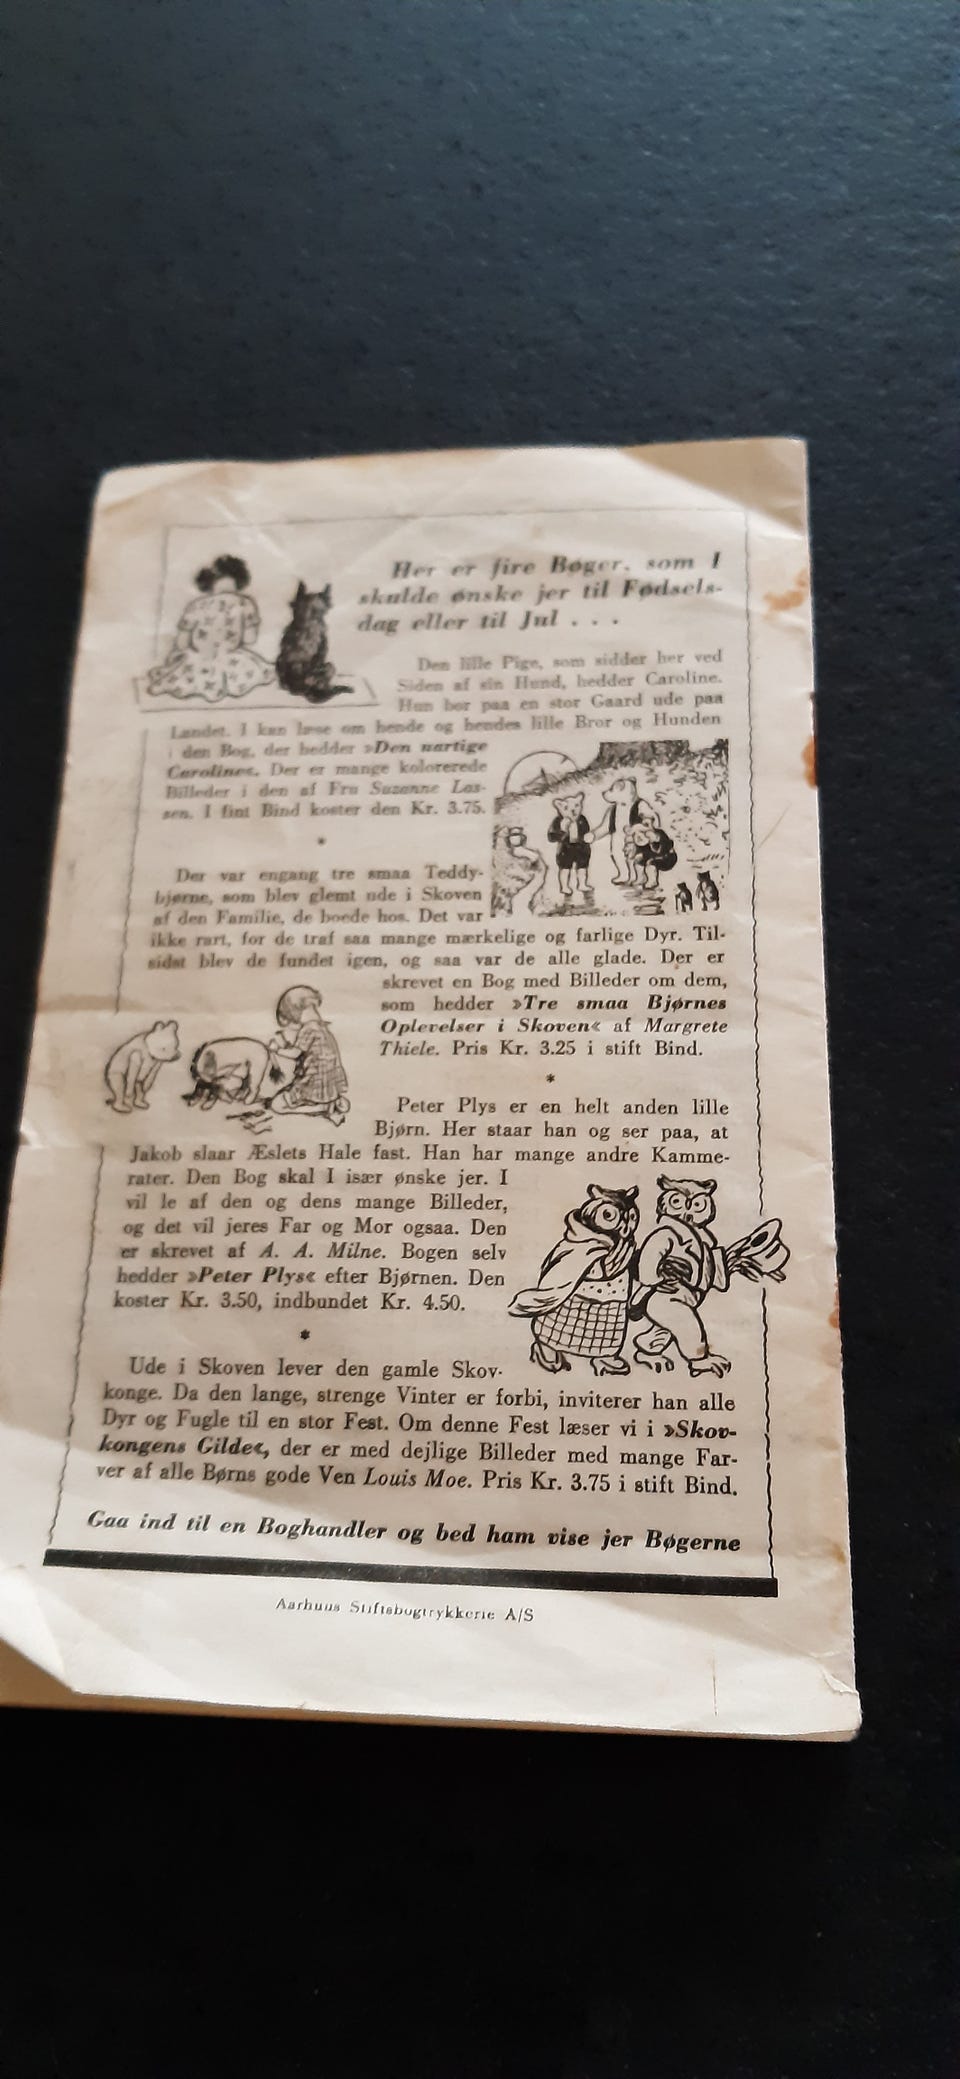 Her er fire Bøger, som I
skulde ønske jer til Fødsels-
dag eller til Jul . . .
Den lille Pige, som sidder her ved
Siden af sin Hund, hedder Caroline.
Hun bor paa en stor Gaard ude paa
Landet. I kan læse om hende og hendes lille Bror og Hunden
i den Bog, der hedder »Den uartige
Caroline«. Der er mange kolorerede
Billeder i den af Fru Suzanne Las-
sen. I fint Bind koster den Kr. 3.75.
*
Der var engang tre smaa Teddy-
bjørne, som blev glemt ude i Skoven
af den Familie, de boede hos. Det var
ikke rart, for de traf saa mange mærkelige og farlige Dyr. Til-
sidst blev de fundet igen, og saa var de alle glade. Der er
skrevet en Bog med Billeder om dem,
som hedder »Tre smaa Bjørnes
Oplevelser i Skoven« af Margrete
Thiele. Pris Kr. 3.25 i stift Bind.
*
Peter Plys er en helt anden lille
Bjørn. Her staar han og ser paa, at
Jakob slaar Æslets Hale fast. Han har mange andre Kamme-
rater. Den Bog skal I især ønske jer. I
vil le af den og dens mange Billeder,
og det vil jeres Far og Mor ogsaa. Den
er skrevet af A. A. Milne. Bogen selv
hedder »Peter Plys« efter Bjørnen. Den
koster Kr. 3.50, indbundet Kr. 4.50.
*
Ude i Skoven lever den gamle Skov-
konge. Da den lange, strenge Vinter er forbi, inviterer han alle
Dyr og Fugle til en stor Fest. Om denne Fest læser vi i »Skov-
kongens Gilde«, der er med dejlige Billeder med mange Far-
ver af alle Børns gode Ven Louis Moe. Pris Kr. 3.75 i stift Bind.
Gaa ind til en Boghandler og bed ham vise jer Bøgerne
Aarhuus Stiftsbogtrykkerie A/S